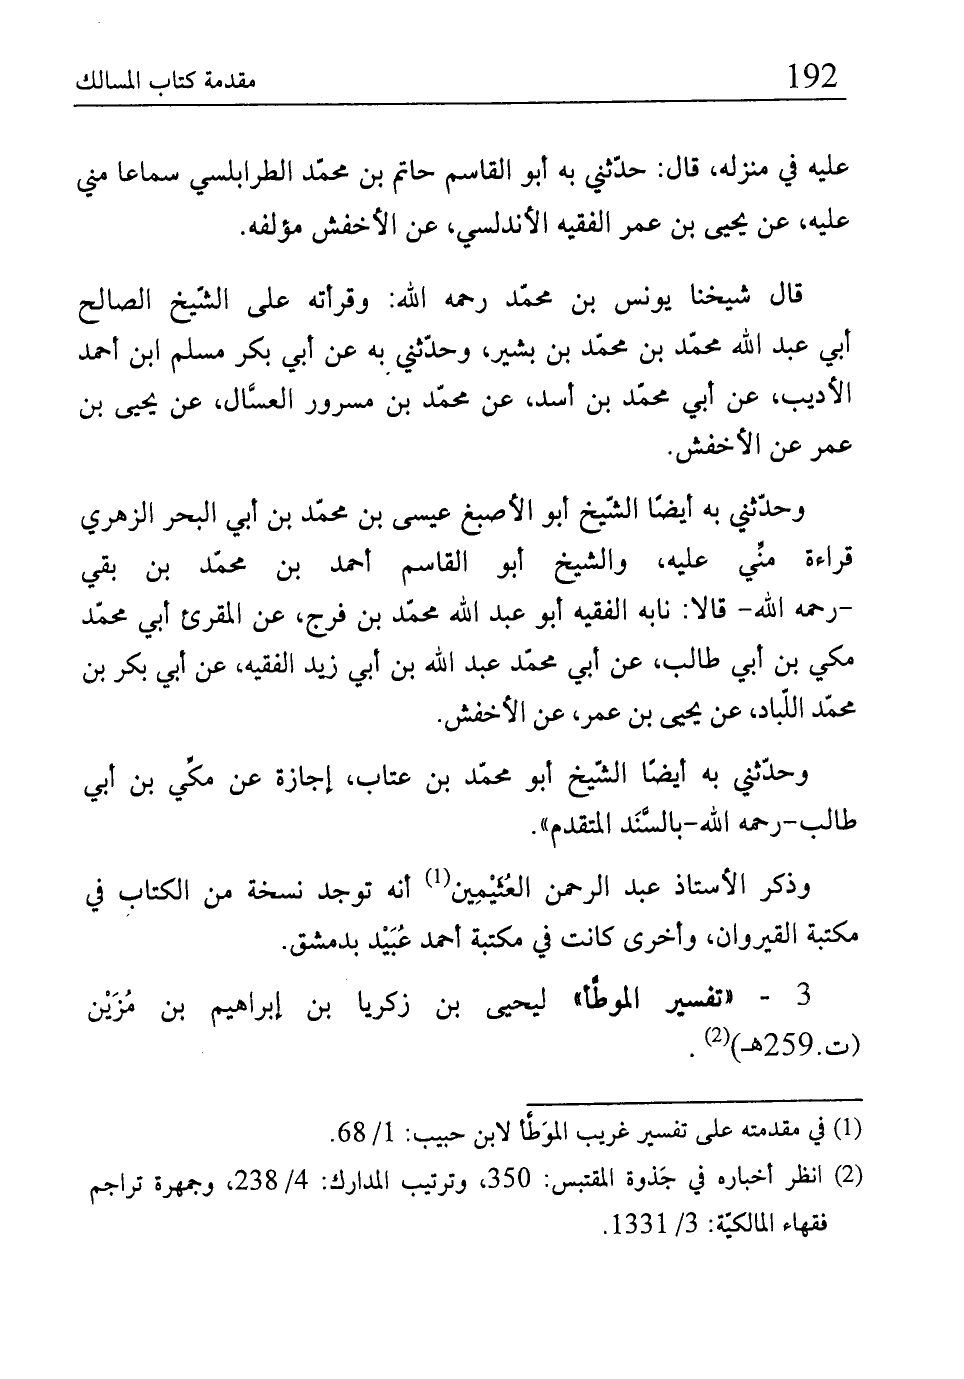 192
مقدمة كتاب المسالك
عليه في منزله، قال: حدّثني به أبو القاسم حاتم بن محمّد الطرابلسي سماعا مني
عليه، عن يحيى بن عمر الفقيه الأندلسي، عن الأخفش مؤلفه.
قال شيخنا يونس بن محمّد رحمه الله: وقرأته على الشّيخ الصالح
أبي عبد الله محمّد بن محمّد بن بشير، وحدّثني به عن أبي بكر مسلم ابن أحمد
الأديب، عن أبي محمّد بن أسد، عن محمّد بن مسرور العسَّال، عن يحيى بن
عمر عن الأخفش.
وحدّثني به أيضًا الشّيخ أبو الأصبغ عيسى بن محمّد بن أبي البحر الزهري
قراءة منِّي عليه، والشيخ أبو القاسم أحمد بن محمّد بن بقي
-رحمه الله- قالا: نابه الفقيه أبو عبد الله محمّد بن فرج، عن المقرئ أبي محمّد
مكي بن أبي طالب، عن أبي محمّد عبد الله بن أبي زيد الفقيه، عن أبي بكر بن
محمّد اللّباد، عن يحيى بن عمر، عن الأخفش.
وحدّثني به أيضًا الشّيخ أبو محمّد بن عتاب، إجازة عن مكِّي بن أبي
طالب-رحمه الله-بالسَّنَد المتقدم».
وذكر الأستاذ عبد الرحمن العُثَيْمِين(1) أنه توجد نسخة من الكتاب في
مكتبة القيروان، وأخرى كانت في مكتبة أحمد عُبَيْد بدمشق.
3 - «تفسير الموطَّأ» ليحيى بن زكريا بن إبراهيم بن مُزَيْن
(ت.259هـ)(2) .
(1) في مقدمته على تفسير غريب الموَطَّأ لابن حبيب: 1/ 68.
(2) انظر أخباره في جَذوة المقتبس: 350، وترتيب المدارك: 4/ 238، وجمهرة تراجم
فقهاء المالكيّة: 3/ 1331.